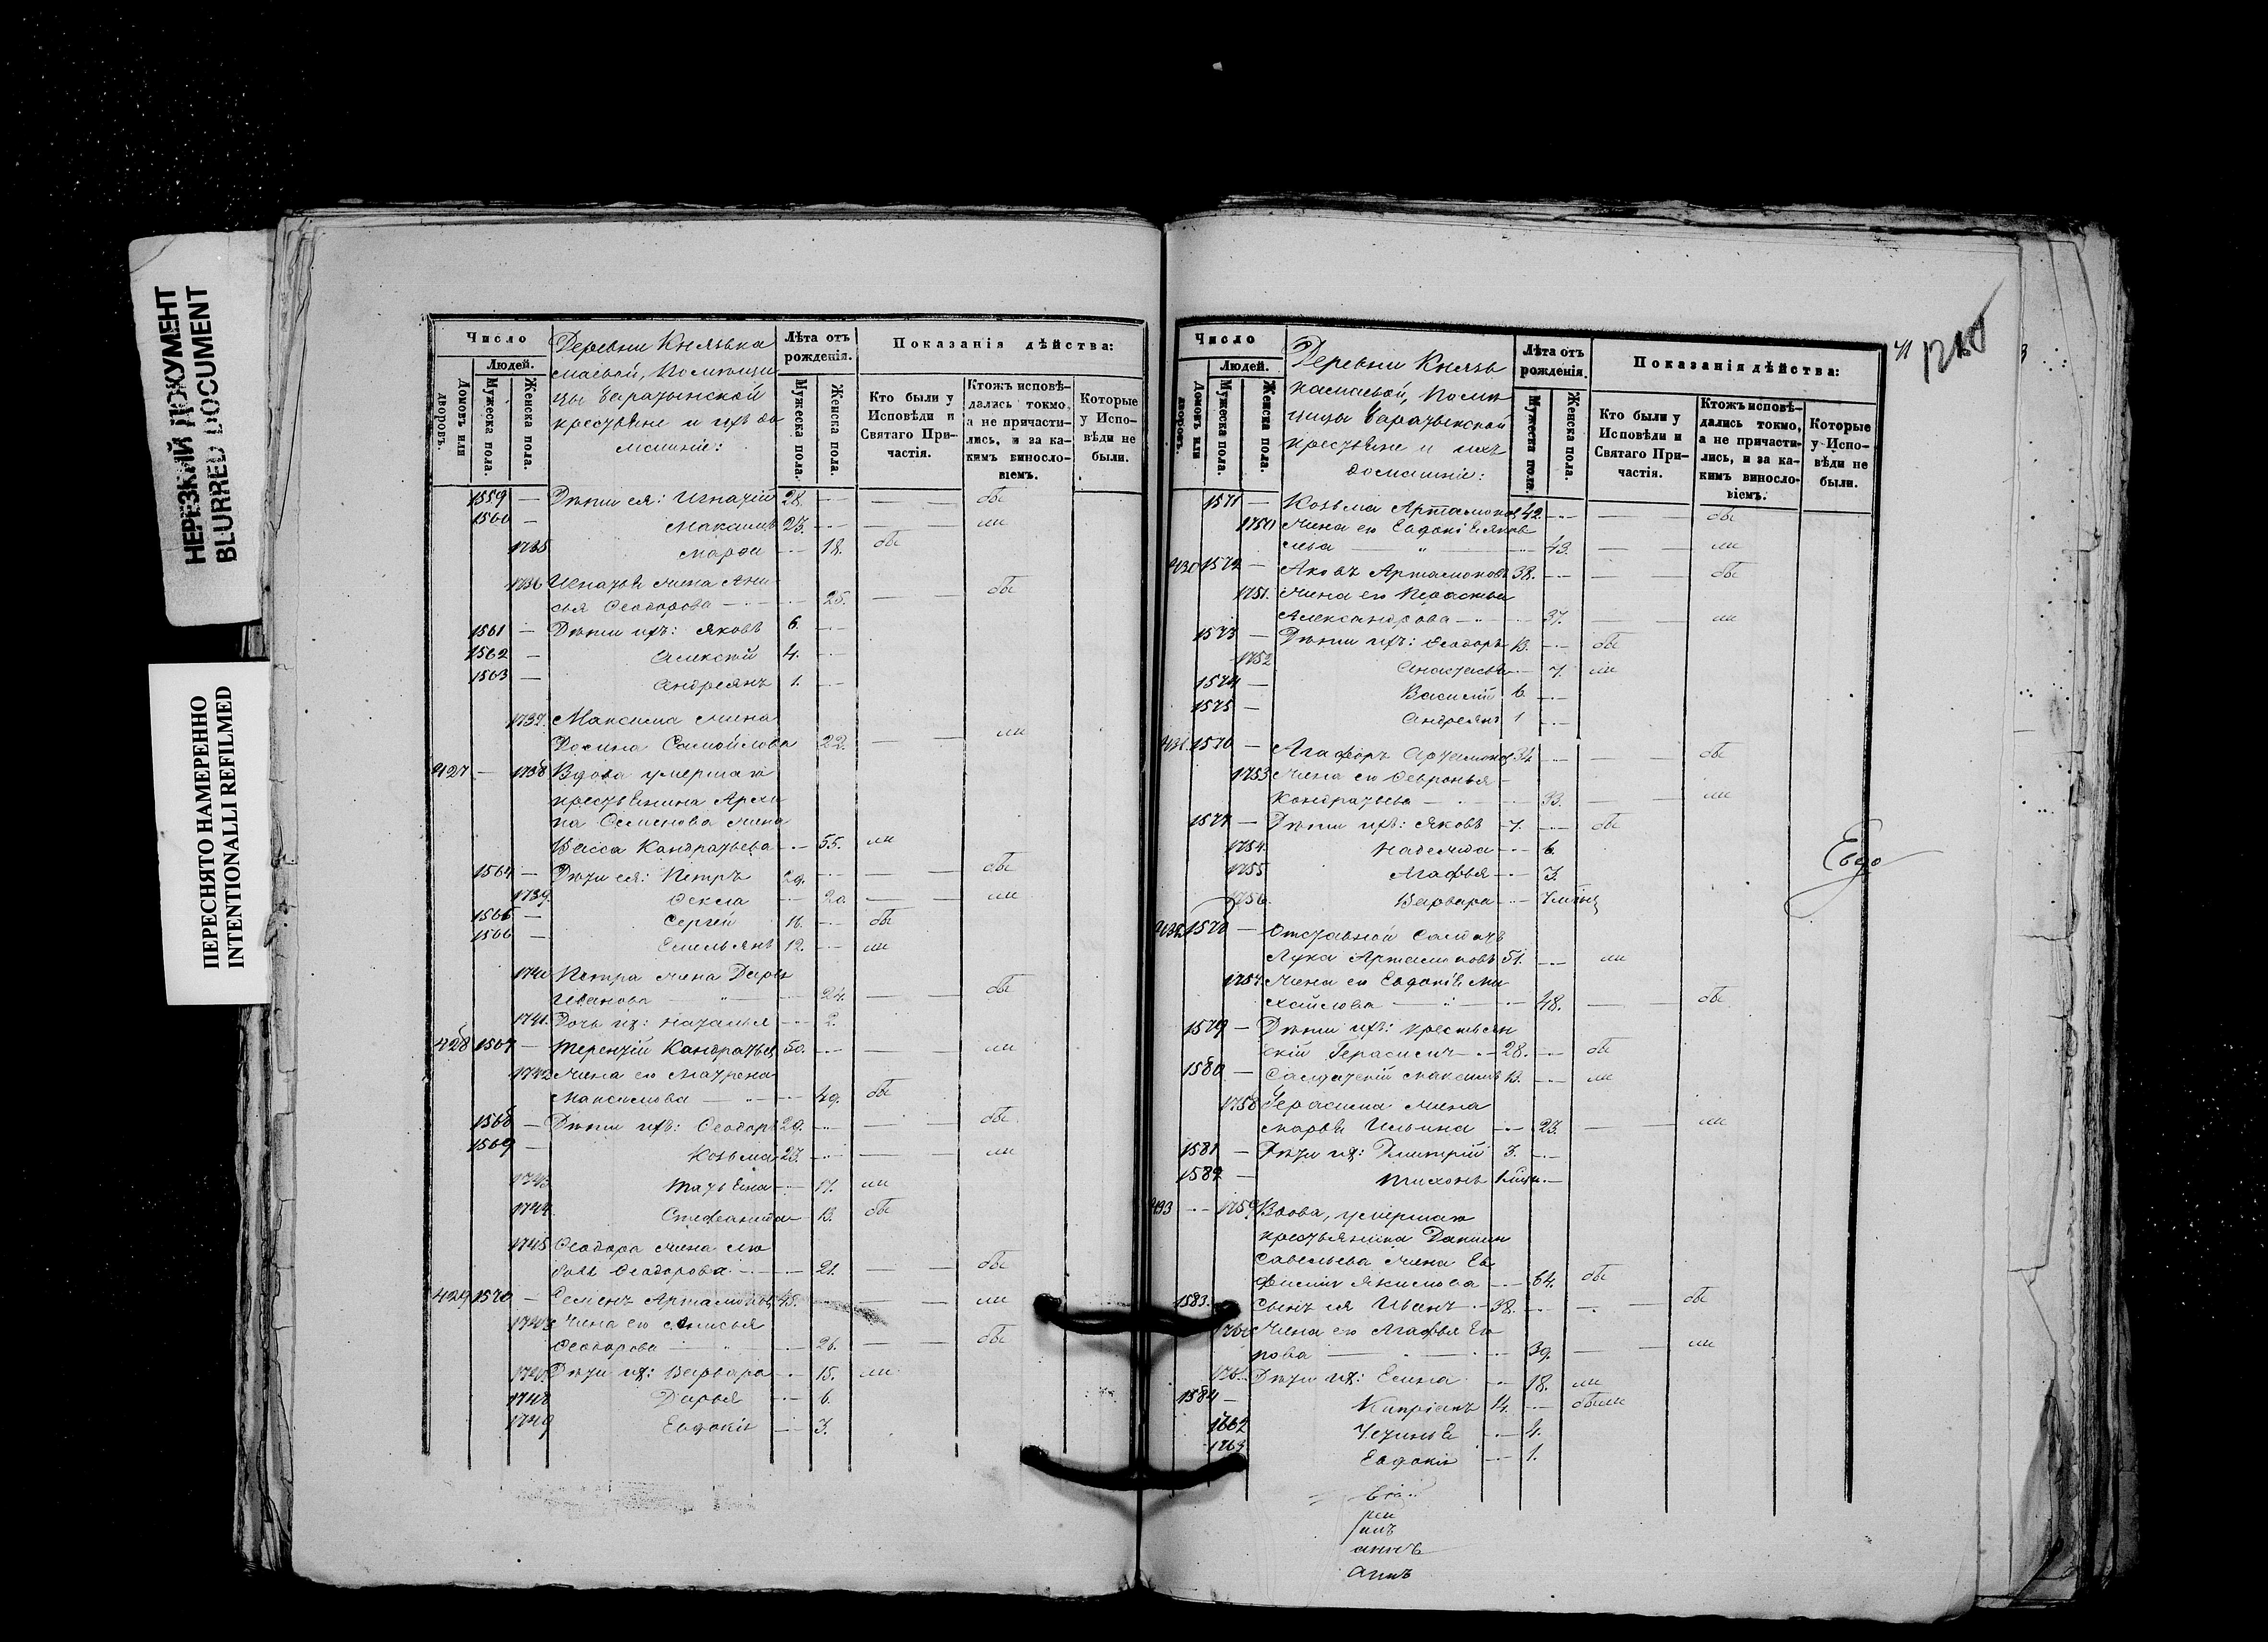 НЕРЕЗКИЙ ДОКУМЕНТ
BLURRED DOCUMENT
ПЕРЕСНЯТО НАМЕРЕННО
INTENTIONALLI REFILMED
Число
Людей.
Домовъ или дворовъ.
Мужеска пола.
Женска пола.
Деревни Князька
маевой, Помѣщи
цы
крестьяне и ихъ до
машніе:
Лѣта отъ рожденія.
Мужеска пола.
Женска пола.
Показанія дѣйства:
Кто были у Исповѣди и Святаго Причастія.
Ктожъ исповѣ-
дались токмо,
а не причасти-
лись, и за ка-
кимъ виносло-
віемъ.
Которые у Испо-
вѣди не были.
1559 — Дѣти ея: Игнатій 28. бы
1560 — Максимъ 23. ли
1735 Марфа 18. бы
1736 Игнатья жена Ани-
сья Ѳеодорова 25. бы
1561 — Дѣти ихъ: Яковъ 6.
1562 — Алексѣй 4.
1563 — Андреянъ 1.
1737. Максима жена
Самойлова 22. ли
427 — 1738 Вдова умершаго
крестьянина Архи
па Семенова жена
Васса Кондратьева 55. ли
1564 — Дѣти ея: Петръ 29. бы
1739. Ѳекла 20. ли
1565 — Сергій 16. бы
1566 — Емельянъ 12. ли
1740 Петра жена Дарья
Иванова 24. бы
1741. Дочь ихъ: Наталья 2.
428 1567 — Терентій Кондратьевъ 50. ли
1742 Жена его Матрена
Максимова 49. бы
1568 — Дѣти ихъ: Ѳеодоръ 29. бы
1569 — Козьма 23. ли
1743 Татьяна 17. ли
1744 Стефанида 13. бы
1745 Ѳеодора жена Лю
бовь Ѳеодорова 21. бы
429 1570 — Семенъ Артамоновъ 45. ли
Жена его Анисья
Ѳеодорова 26. бы
Дѣти ихъ: Варвара 15. ли
1748 Дарья 6.
1749 Евдокія 3.
Число
Людей.
Домовъ или дворовъ.
Мужеска пола.
Женска пола.
Деревни Князь
камаевой, Помѣ
щицы
крестьяне и ихъ
домашніе:
Лѣта отъ рожденія.
Мужеска пола.
Женска пола.
Показанія дѣйства:
Кто были у Исповѣди и Святаго Причастія.
Ктожъ исповѣ-
дались токмо,
а не причасти-
лись, и за ка-
кимъ виносло-
віемъ.
Которые у Испо-
вѣди не были.
1571 — Козьма Артамоновъ 42. бы
1750 Жена его Евдокія Яков
лева 43. ли
430 1572 — Яковъ Артамоновъ 38. бы
1751. Жена его Параскева
Александрова 37. ли
1573 — Дѣти ихъ: Ѳеодоръ 13. бы
1752 Анастасья 7. ли
1574 — Василій 6.
1575 — Андреянъ 1
431. 1576 — Агафоръ Артамоновъ 34. бы
1753 Жена его Ѳевронья
Кондратьева 33. ли
1577 — Дѣти ихъ: Яковъ 7. бы
1754. Надежда 6.
1755 Агафья 3.
1756. Варвара
432. 1578 — Отставной Солдатъ
Лука Артамоновъ 51. ли
1757. Жена его Евдокія Ми
хайлова 48. бы
1579 — Дѣти ихъ: крестьян
скій Герасимъ 28. бы
1580 — Солдатскій Максимъ 13. ли
1758 Герасима жена
Марья Ильина 23. ли
1581 — Дѣти ихъ: Дмитрій 3.
1582 — Тихонъ
433 1759 Вдова, умершаго
крестьянина Данилы
Савельева жена Ев
фимія Якимова 64. бы
1583. Сынъ ея Иванъ 38. бы
Жена его Агафья Его
рова 39. ли
Дѣти ихъ: Елена 18. ли
1584 — Кипріанъ 14. были
1662 Устинья 4.
1763 Евдокія 1.
Евдо